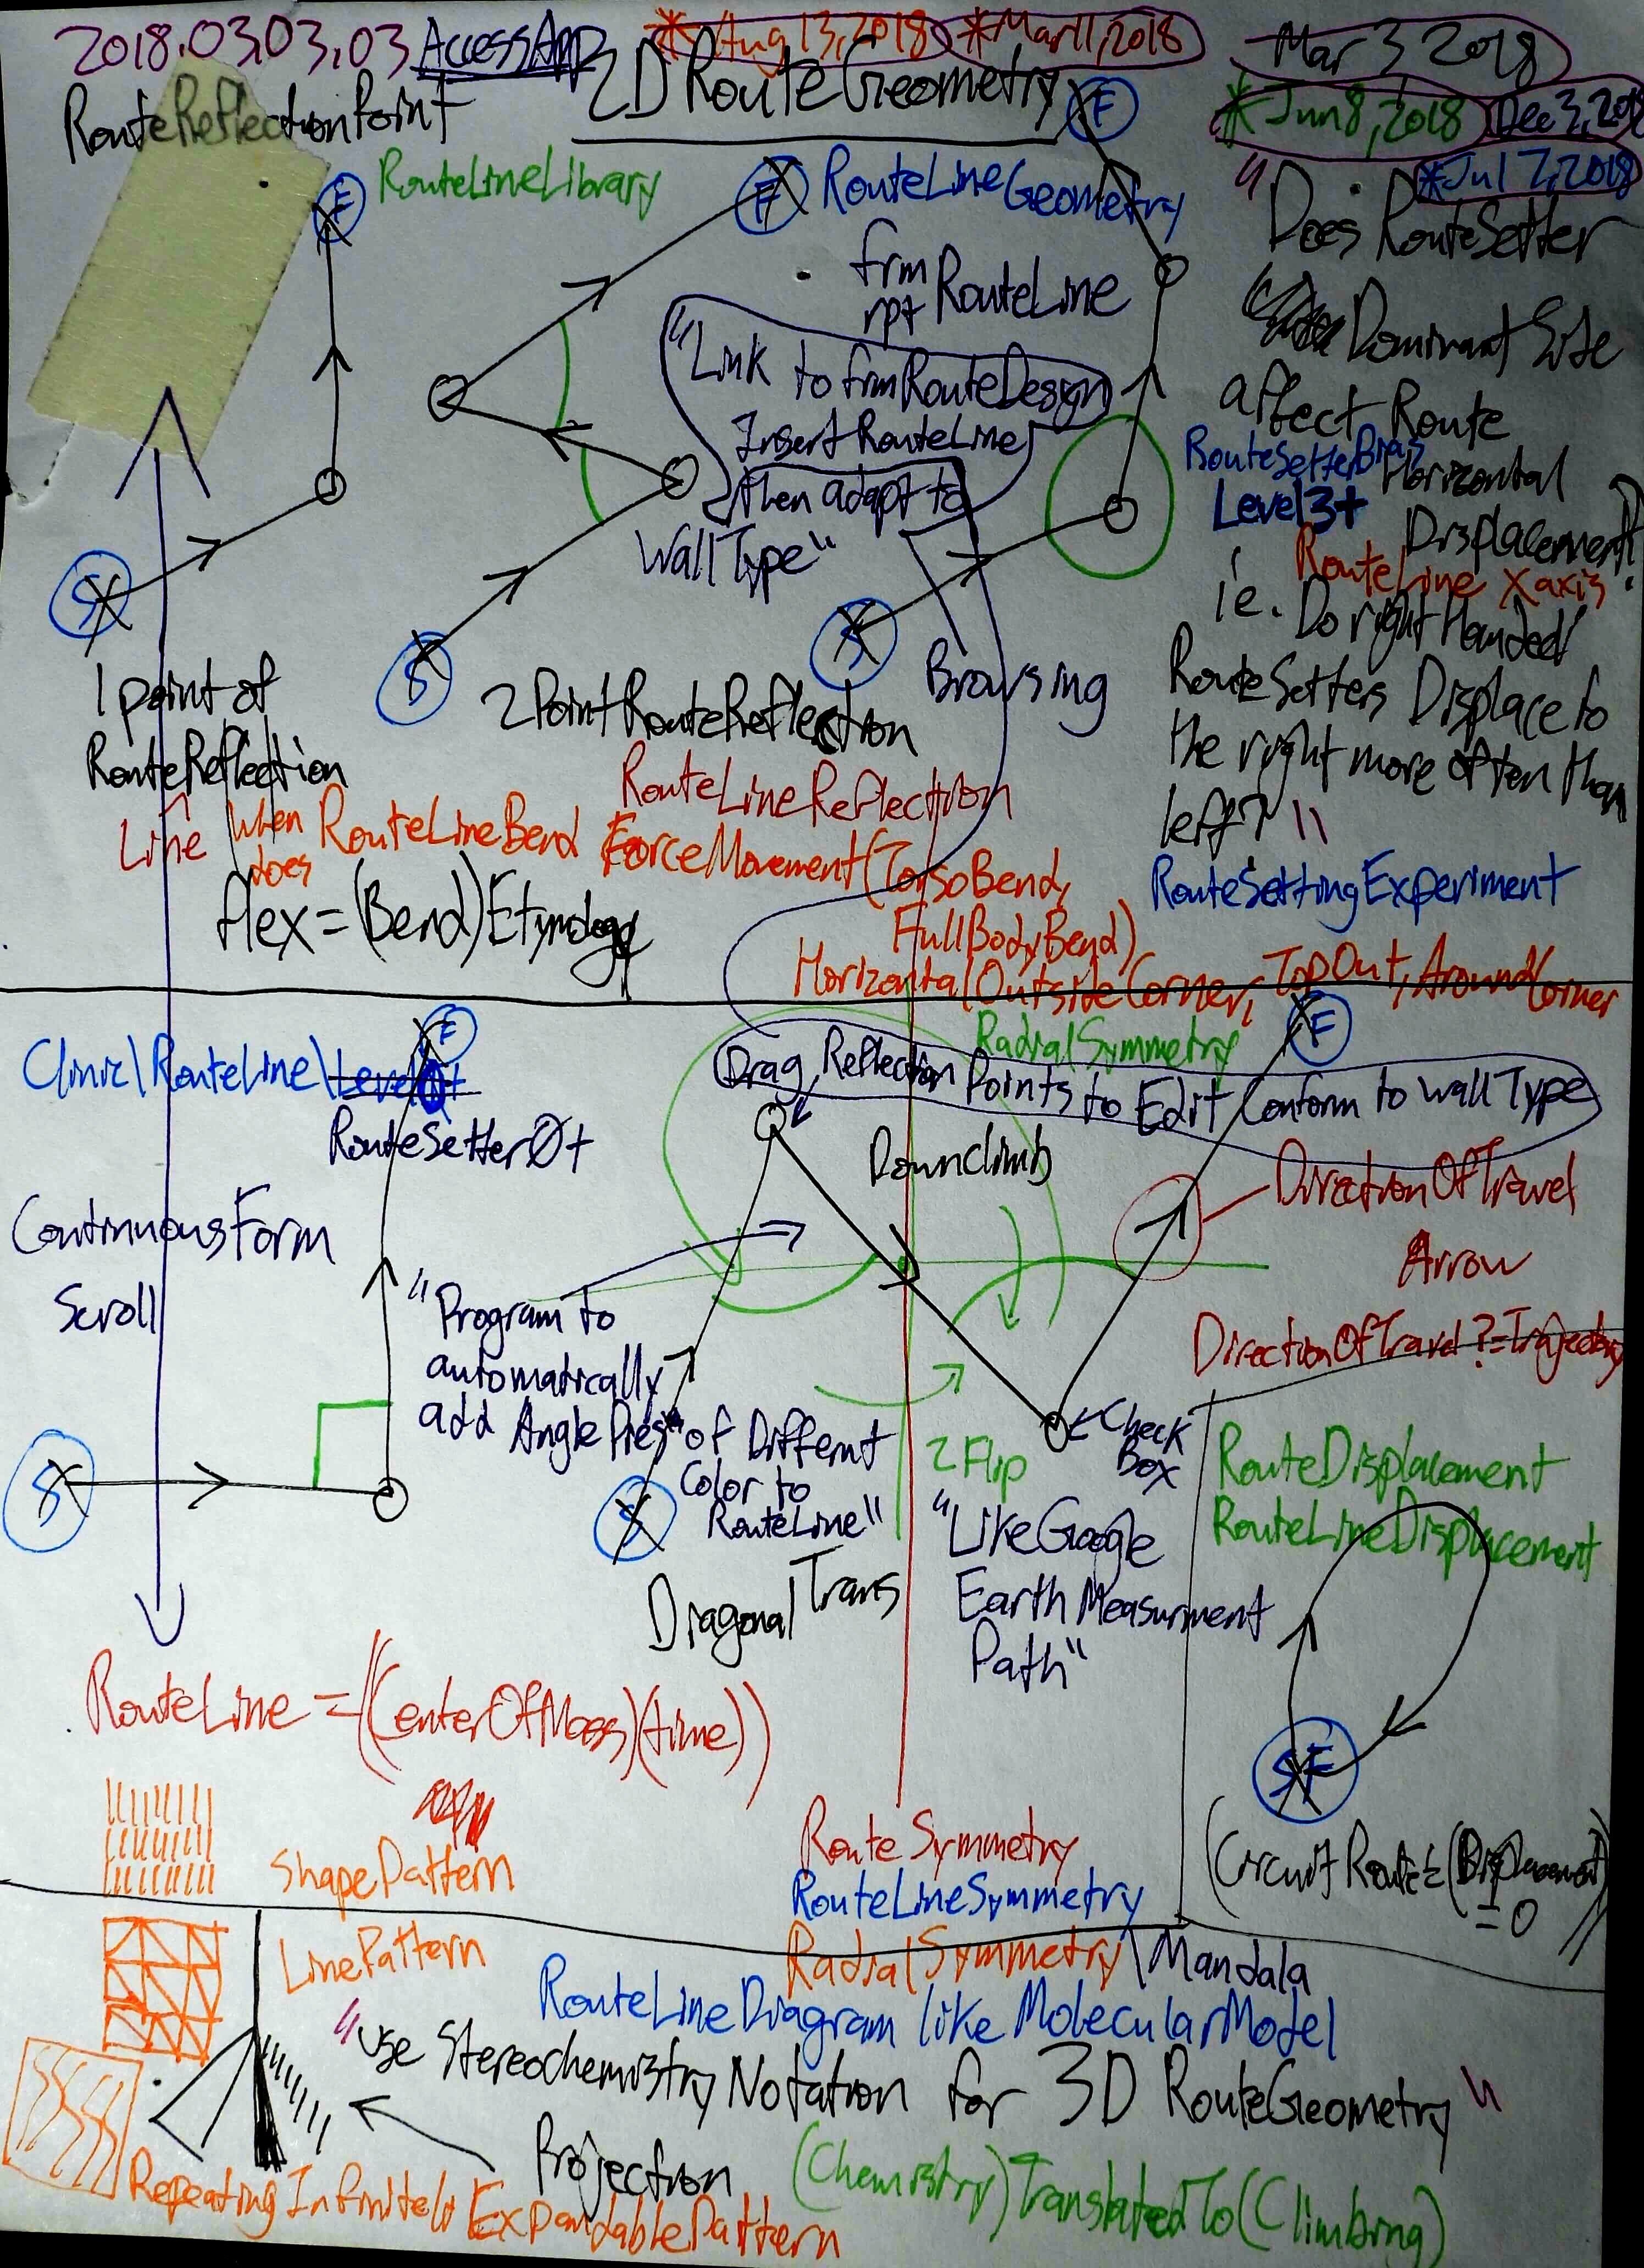 2018.03.03.03 AccessApp *Aug 13, 2018 *Mar 11, 2018 Mar 3 2018
2D RouteGeometry
*Jun 8, 2018 Dec 3, 20
*Jul 7, 2018
RouteReflectionPoint
F
RouteLineLibrary
F
RouteLineGeometry
F
frm
rpt RouteLine
"Link to frmRouteDesign
Insert RouteLine
then adapt to
WallType"
Browsing
"Does RouteSetter
Dominant Side
affect Route
Horizontal
Displacement?
RouteSetterBias
Level3+
RouteLine Xaxis
i.e. Do right Handed
RouteSetters Displace to
the right more often than
left?"
RouteSettingExperiment
S
S
S
1 point of
RouteReflection
Line
2PointRouteReflection
RouteLineReflection
When does RouteLineBend ForceMovement(TorsoBend,
FullBodyBend)
HorizontalOutsideCorner, TopOut, AroundCorner
flex=(Bend)Etymology
Clinic\RouteLine\Level0+
RouteSetter0+
F
RadialSymmetry
F
Drag Reflection Points to Edit Conform to WallType
DownClimb
DirectionOfTravel
Arrow
DirectionOfTravel?=Trajectory
ContinuousForm
Scroll
"Program to
automatically
add AnglePies" of Different
Color to
RouteLine"
S
S
Diagonal Trans
2 Flip
Check
Box
"Like Google
Earth Measurment
Path"
RouteDisplacement
RouteLineDisplacement
SF
(CircuitRoute=(Displacement)
=0
RouteLine=((CenterOfMass)(time))
ShapePattern
RouteSymmetry
RouteLineSymmetry
RadialSymmetry\Mandala
LinePattern
RouteLineDiagram like MolecularModel
"Use Stereochemistry Notation for 3D RouteGeometry"
Projection
(Chemistry)TranslatedTo(Climbing)
RepeatingInfinitely ExpandablePattern